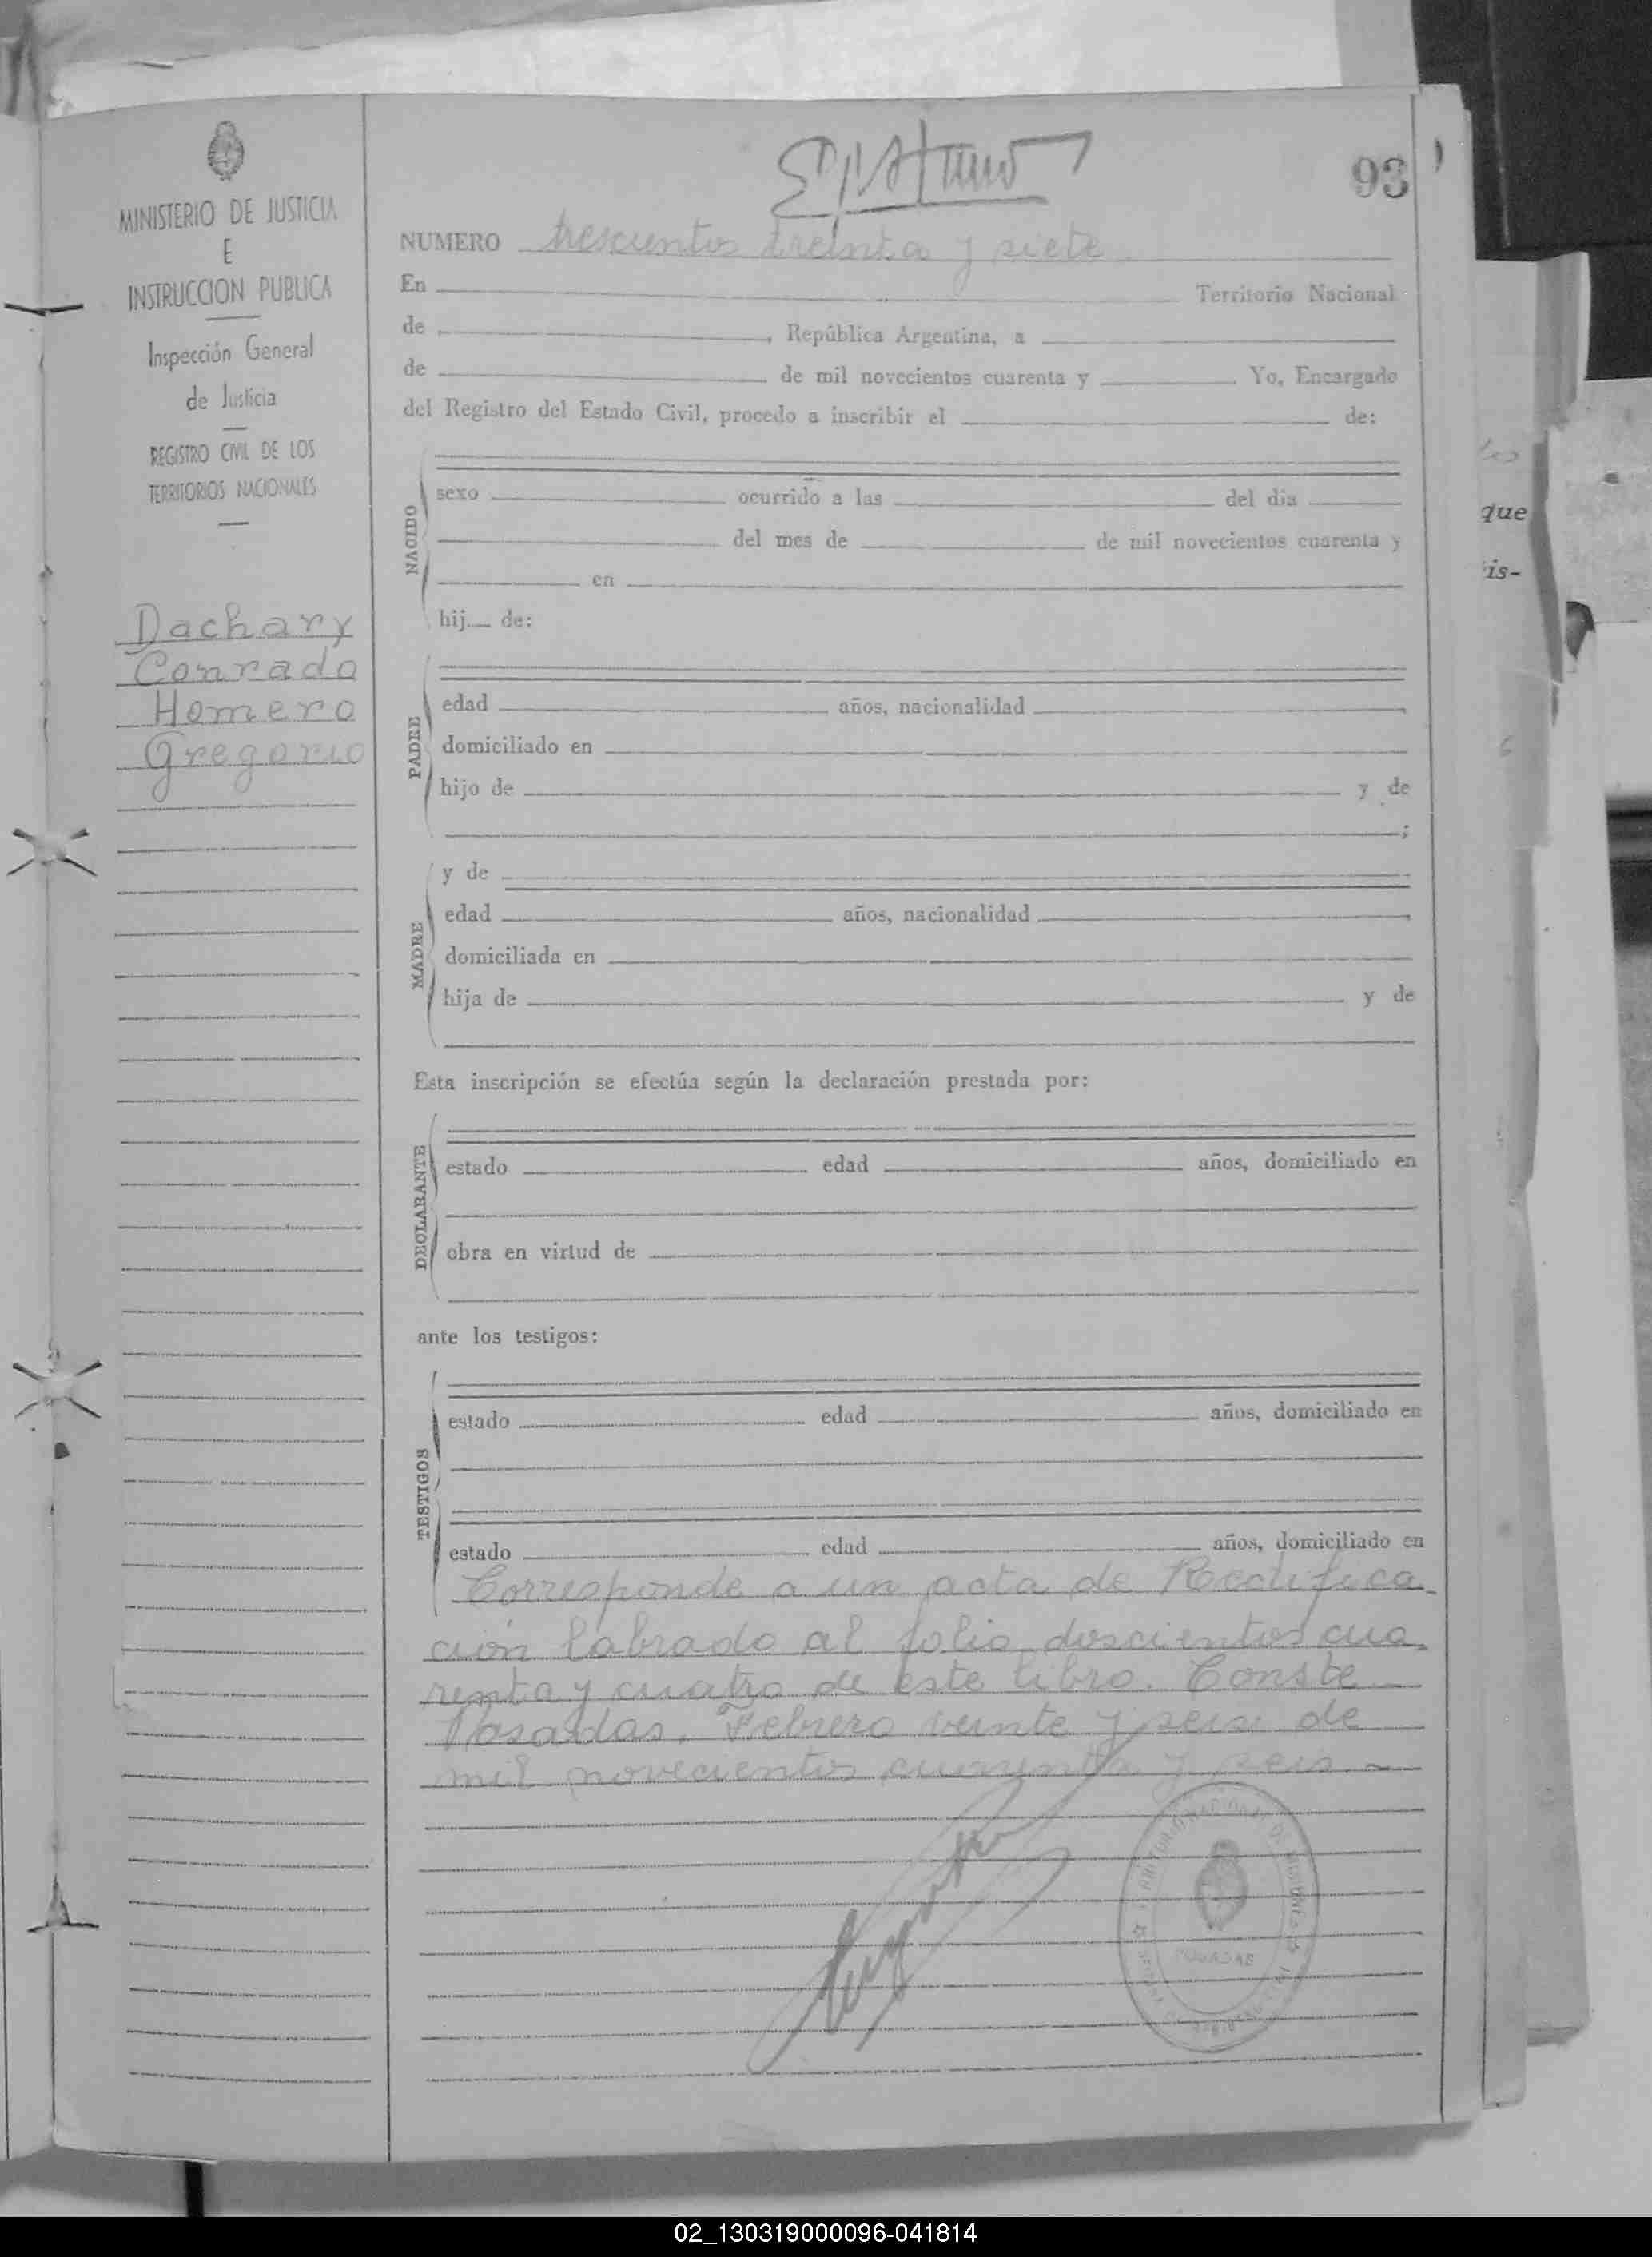 MINISTERIO DE JUSTICIA
E
INSTRUCCION PUBLICA
Inspección General
de Justicia
REGISTRO CIVIL DE LOS
TERRITORIOS NACIONALES
Dachary
Conrado
Homero
Gregorio
93
NUMERO trescientos treinta y siete
En Territorio Nacional
de , República Argentina, a
de de mil novecientos cuarenta y Yo, Encargado
del Registro del Estado Civil, procedo a inscribir el de:
NACIDO
sexo ocurrido a las del dia
del mes de de mil novecientos cuarenta y
en
hij de:
PADRE
edad años, nacionalidad ,
domiciliado en
hijo de y de
;
MADRE
y de
edad años, nacionalidad ,
domiciliada en
hija de y de
Esta inscripción se efectúa según la declaración prestada por:
DECLARANTE
estado edad años, domiciliado en
obra en virtud de
ante los testigos:
TESTIGOS
estado edad años, domiciliado en
estado edad años, domiciliado en
Corresponde a un acta de Rectifica-
ción labrado al folio doscientos cua-
renta y cuatro de este libro. Conste
Posadas, Febrero veinte y seis de
mil novecientos cuarenta y seis
POSADAS
que
is-
02_130319000096-041814